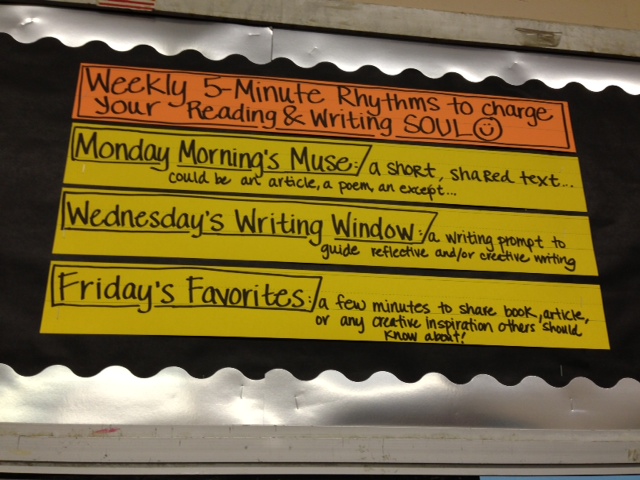 Weekly 5-Minute Rhythms to charge
your Reading & Writing SOUL
Monday Morning's Muse: a short, shared text...
could be an article, a poem, an except...
Wednesday's Writing Window: a writing prompt to
guide reflective and/or creative writing
Friday's Favorites: a few minutes to share book, article,
or any creative inspiration others should
know about!